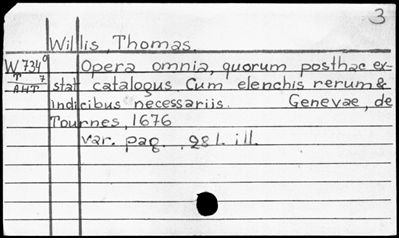 3
Willis, Thomas.
W 734 9 Opera omnia, quorum posthac ex-
T 7 stat catalogus. Cum elenchis rerum &
AHT indicibus necessariis. Genevae, de
Tournes, 1676
var. pag., 28 l. ill.